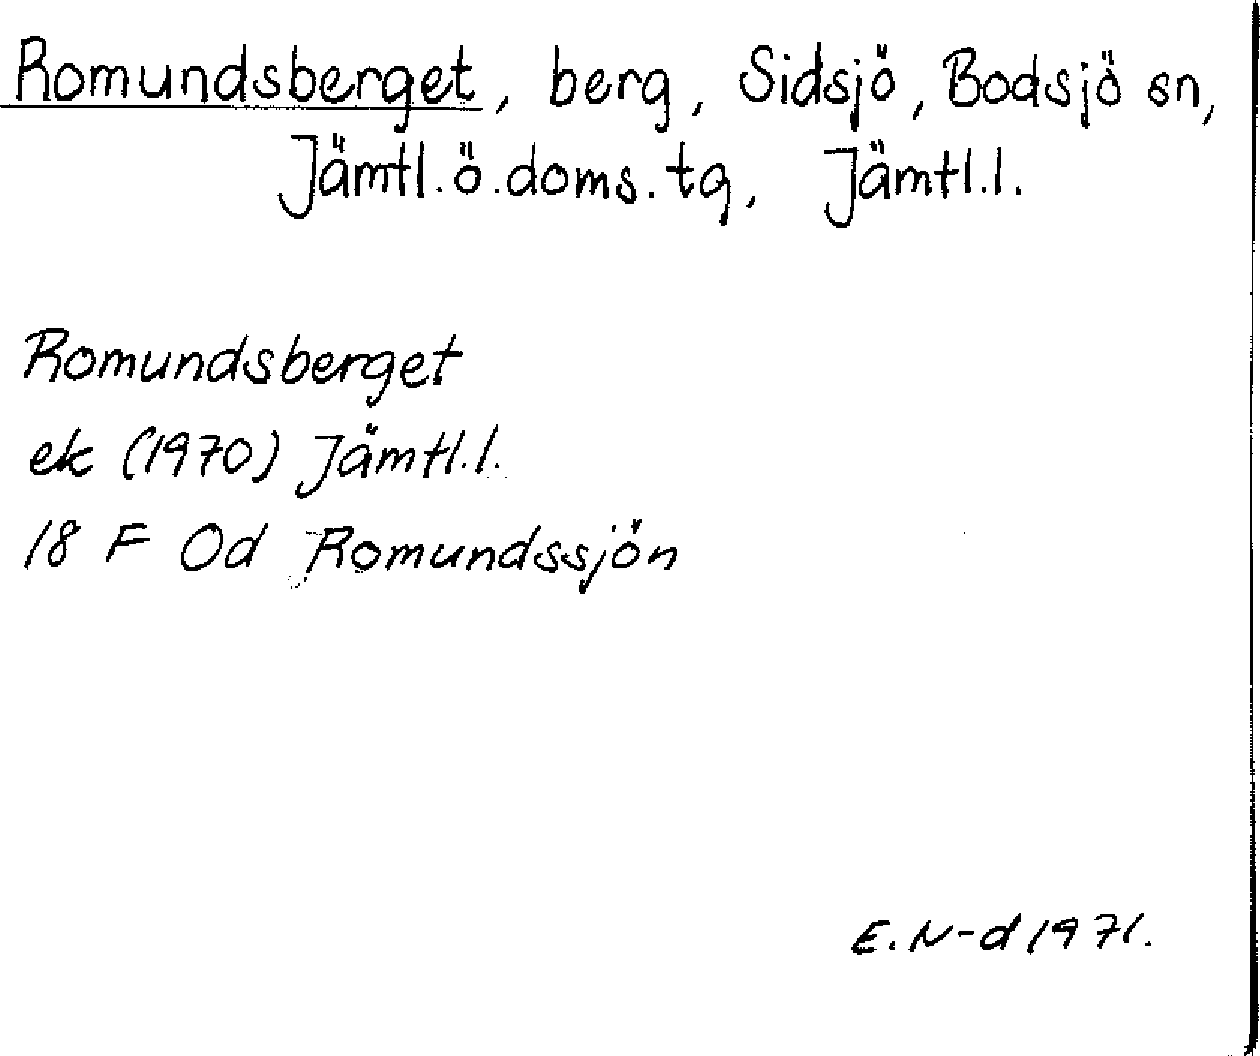 Romundsberget, berg, Sidsjö, Bodsjö sn,
Jämtl.ö.doms.tg, Jämtl.l.
Romundsberget
ek (1970) Jämtl.l.
18 F Od Romundssjön
E.N-d 1971.